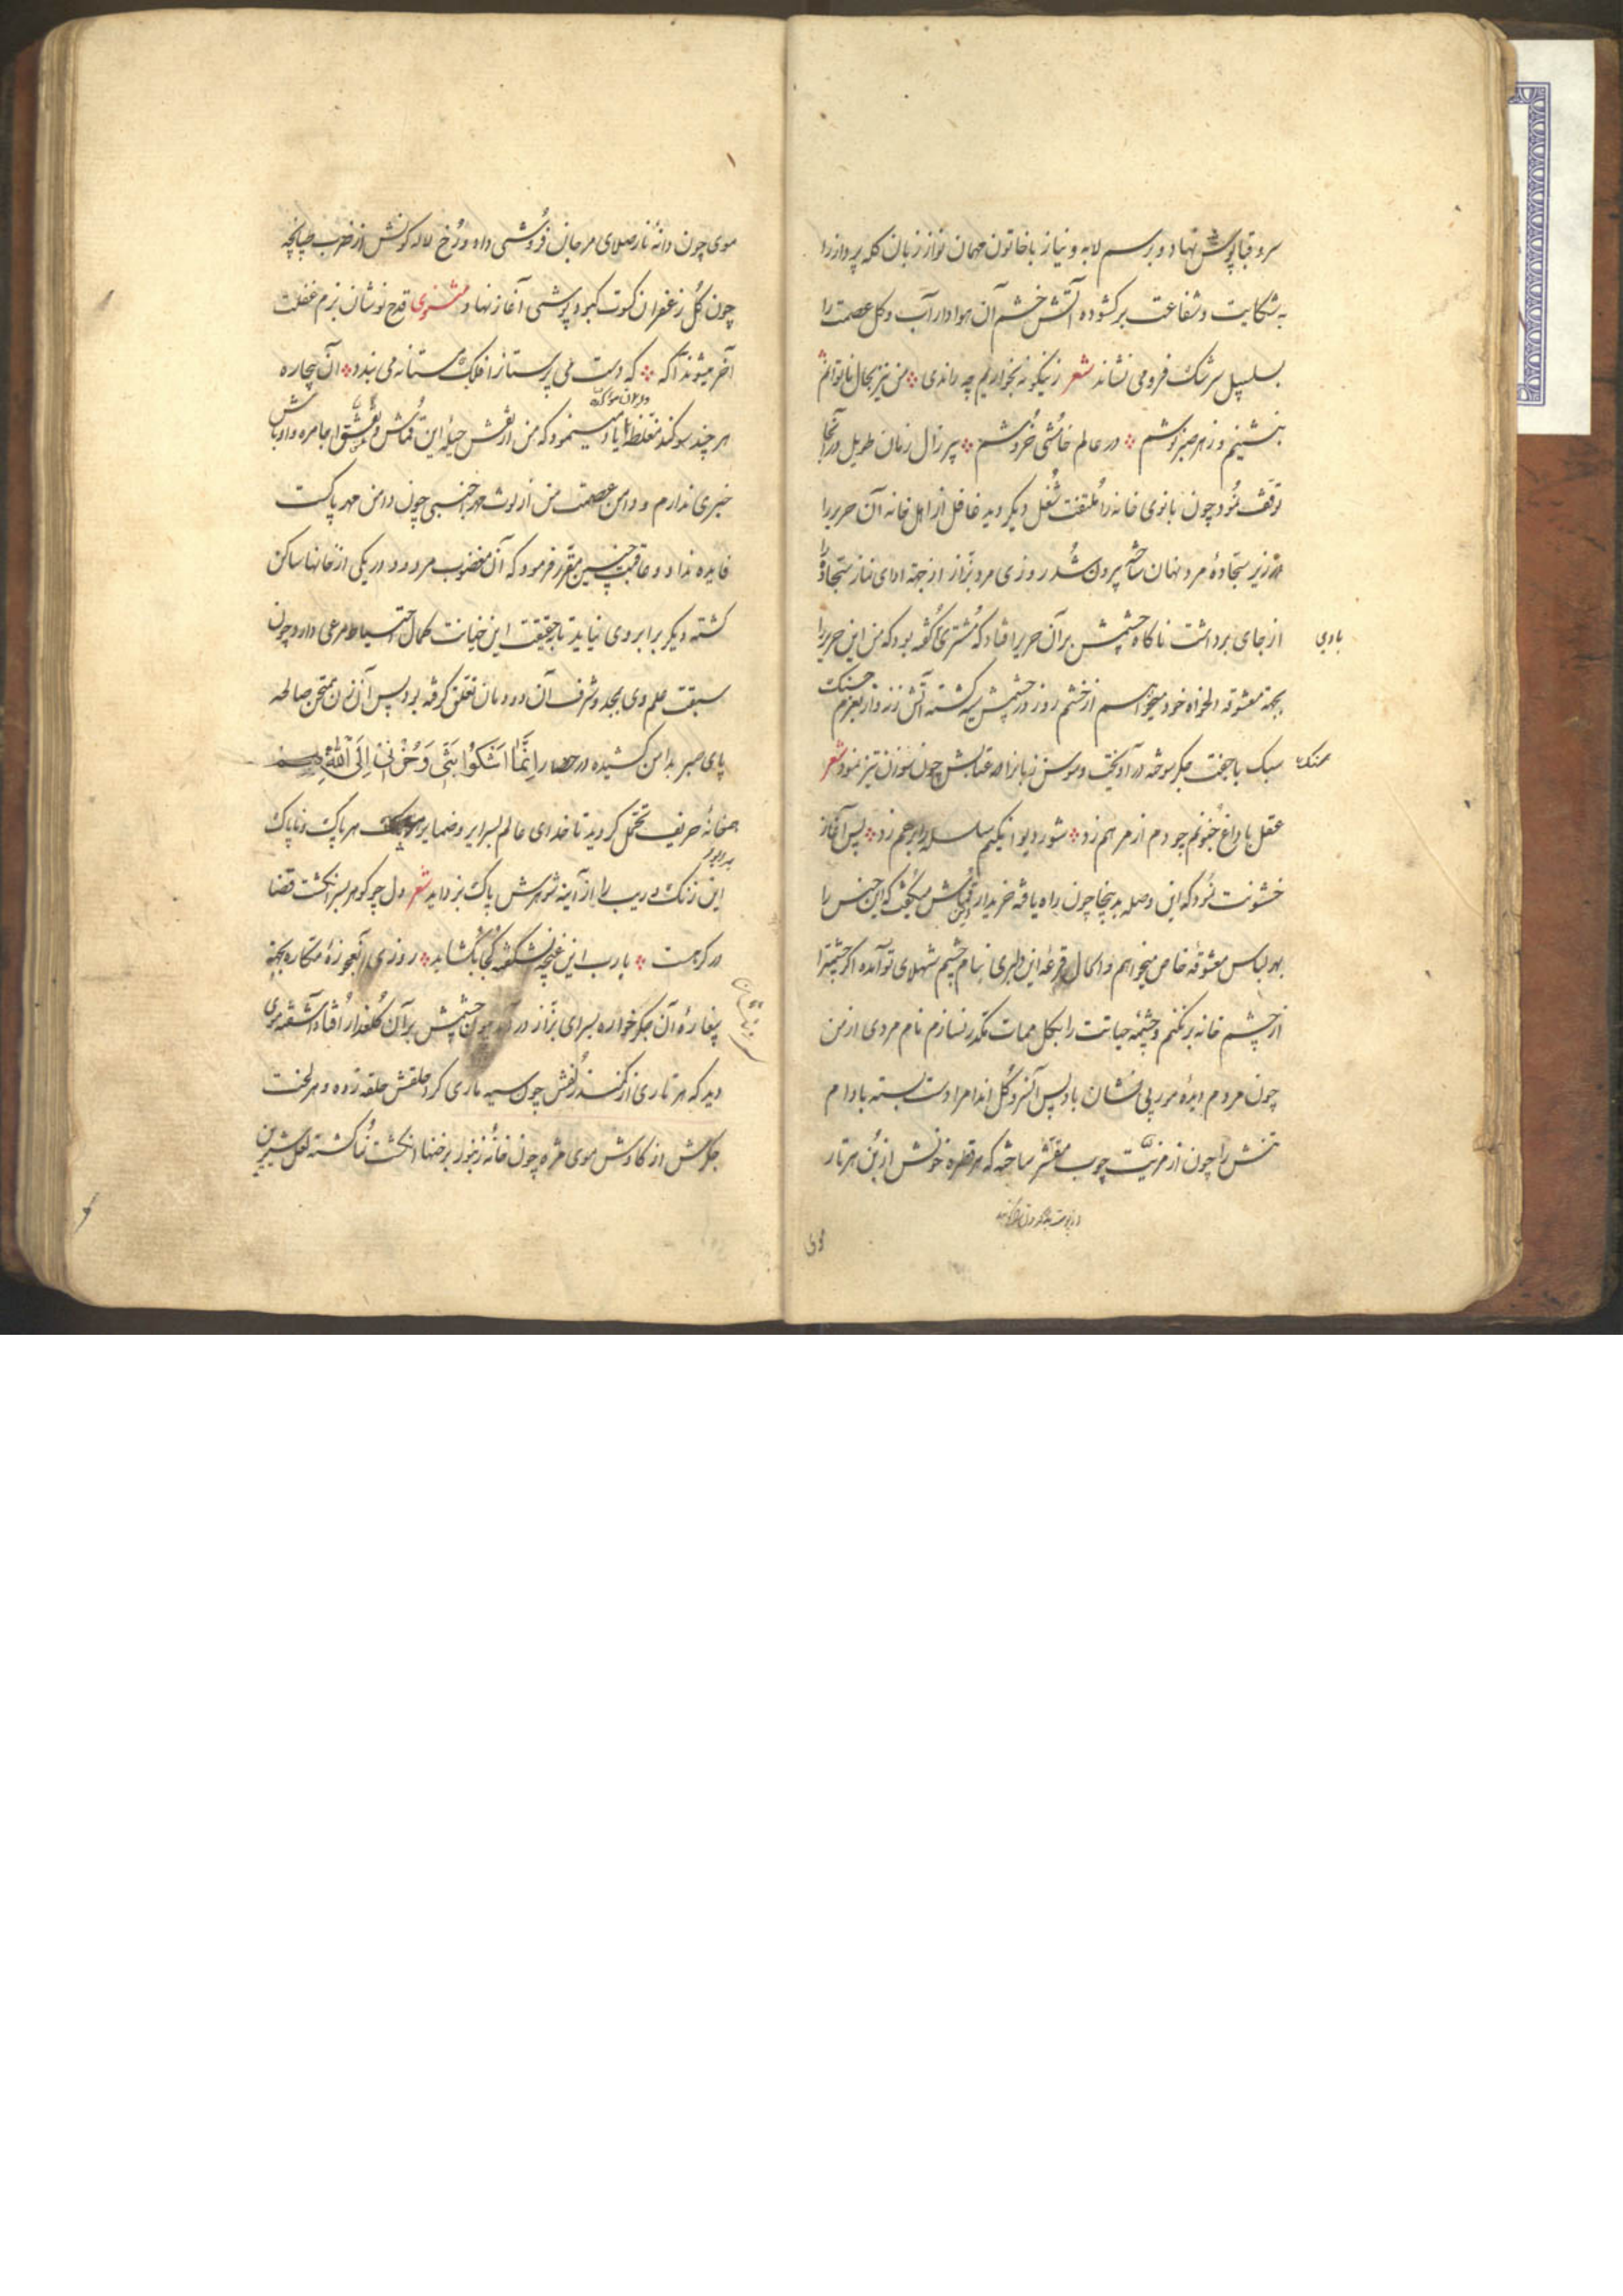 سرو قباپوش نهاد و برسم لابه و نیاز با خاتون مهمان نواز زبان کله پرداز را
به شکایت و شفاعت برکشوده آتش خشم آن هوادار آب و کل عصمت را
بسلسبیل سرشک فرو می نشاند شعر زینکونه بخواریم چه راندی من نیز بحال ناتوانم
بنشینم و زهر صبر نوشم در عالم خامشی خروشم پیر زال زمان طویل در آنجا
توقف نمود چون بانوی خانه را ملتفت شغل دیکر دید غافل از اهل خانه آن حریر را
در زیر سجاده مرد نهان ساخته بیرون شد روزی مرد بزاز از جهته ادای نماز سجاده را
از جای برداشت ناکاه چشمش بر آن حریر افتاد که مشتری کفته بود که من این حریر را
بجهته معشوقه دلخواه خود میخواهم از خشم روز در چشمش سیه کشته آتش زنه وار بعزم جنک
سبک با جفت جکر سوخته در آویخت و سوسن زبانرا در عتابش چون سوزن تیز نمود شعر
عقل با داغ جنونم چو دم از مرهم زد شور دیوانکیم سلسله را بر هم زد پس آغاز
خشونت نمود که این وصله بدینجا چون راه یافته خریدار قماش میکفت که این جنس را
بهر لباس معشوقه خاص میخواهم و الحال قرعه این دلبری بنام چشم شهلای تو آمده اکر چشمترا
از چشم خانه بر نکنم و چشمه حیاتت را بکل ممات مکدر نسازم نام مردی از من
چون مردم دیده مور بی نشان باد پس آنسرو کل اندام را دست بسته بادام
تنش را چون از مرتبت چوب مقشر ساخته که هر قطره خونش از بن هر تار
موی چون دانه نار صلای مرجان فروشی داده و رخ لاله کونش از ضرب طپانچه
چون کل زعفران کسوت کبود پوشی آغاز نهاد مثنوی قدح نوشان بزم غفلت
آخر میشوند آکه که دست می پرستانرا فلک مستانه می بندد آن بیچاره
هر چند سوکند مغلظ یاد مینمود که من از نقش حیله این قماش و عشق اجامره و اوباش
خبری ندارم و دامن عصمت من از لوث هر جنسی چون دامن مهر پاکست
فایده نداد و عاقبت چنین مقرر فرمود که آن مغضوب مردود در یکی از خانها ساکن
کشته دیکر برابر وی نیاید تا حقیقت این خیانت کمال احتیاط مرعی دارد چون
سبقت علم وی بجد و شرف آن دودمان تعلق کرفته بود پس آن زن ممتحن صالحه
پای صبر بدامن کشیده در حصار اِنَّمَا اَشْکُوا بَثّی وَحُزْنی اِلَی اللّٰهِ
همخانه حریف تحمل کردید تا خدای عالم بسرایر و ضمایر هر پاک و ناپاک
این زنک ریب را از آینه شوهرش پاک بزداید شعر دل چو کوهر بسر انکشت قضا
در کرهست یارب این غنچه نشکفته کجا بکشاید روزی آنعجوزه مکاره بجهته
پیغاره آن جکرخواره بسرای بزاز در آمد چون چشمش بر آن کلعذار افتاد آشفته موی
دید که هر تاری از کمند زلفش چون سیه ماری کرد حلقش حلقه زده و هر لخت
جکرش از کاوش موی مژه چون خانه زنبور برخنها انکشت نما کشته لعل شیرین